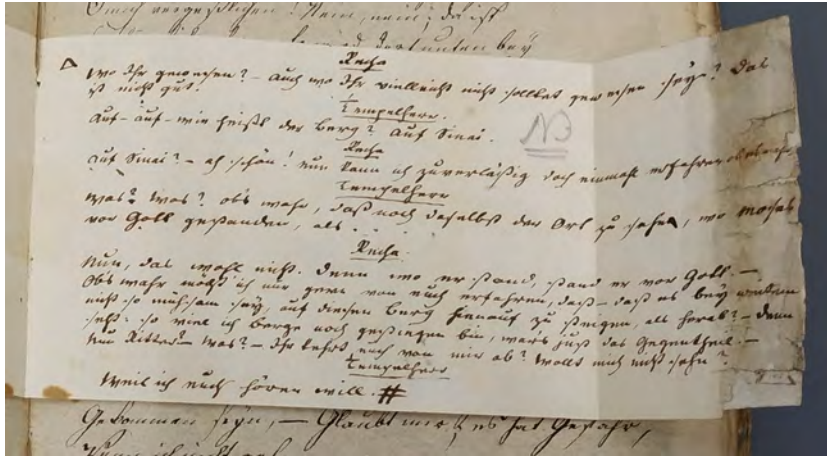 vergeßlichen! Nein, nein; da ist
dort unten bey
Recha
Wo Ihr gewesen? – auch wo Ihr vielleicht nicht solltet gewesen seyn? Das
ist nicht gut.
Tempelherr.
Auf – auf – wie heißt der Berg? auf Sinai.
NB
Recha
Auf Sinai? – ah schön! nun kann ich zuverläßig doch einmahl erfahren ob es wahr,
Tempelherr
Was? was? ob's wahr, daß noch daselbst der Ort zu sehn, wo Moses
vor Gott gestanden, als . . .
Recha.
Nun, das wohl nicht. Denn wo er stand, stand er vor Gott. –
Ob's wahr möcht ich nur gern von euch erfahren, daß – daß es bey weitem
nicht so mühsam sey, auf diesen Berg hinauf zu steigen, als herab? – denn
seht: so viel ich Berge noch gestiegen bin, war's just das Gegentheil. –
Nun Ritter? – Was? – Ihr kehrt euch von mir ab? wollt mich nicht sehn?
Tempelherr
Weil ich euch hören will. #
Gekommen seyn, – Glaubt mir, es hat Gefahr,
Wenn ich nicht geh.